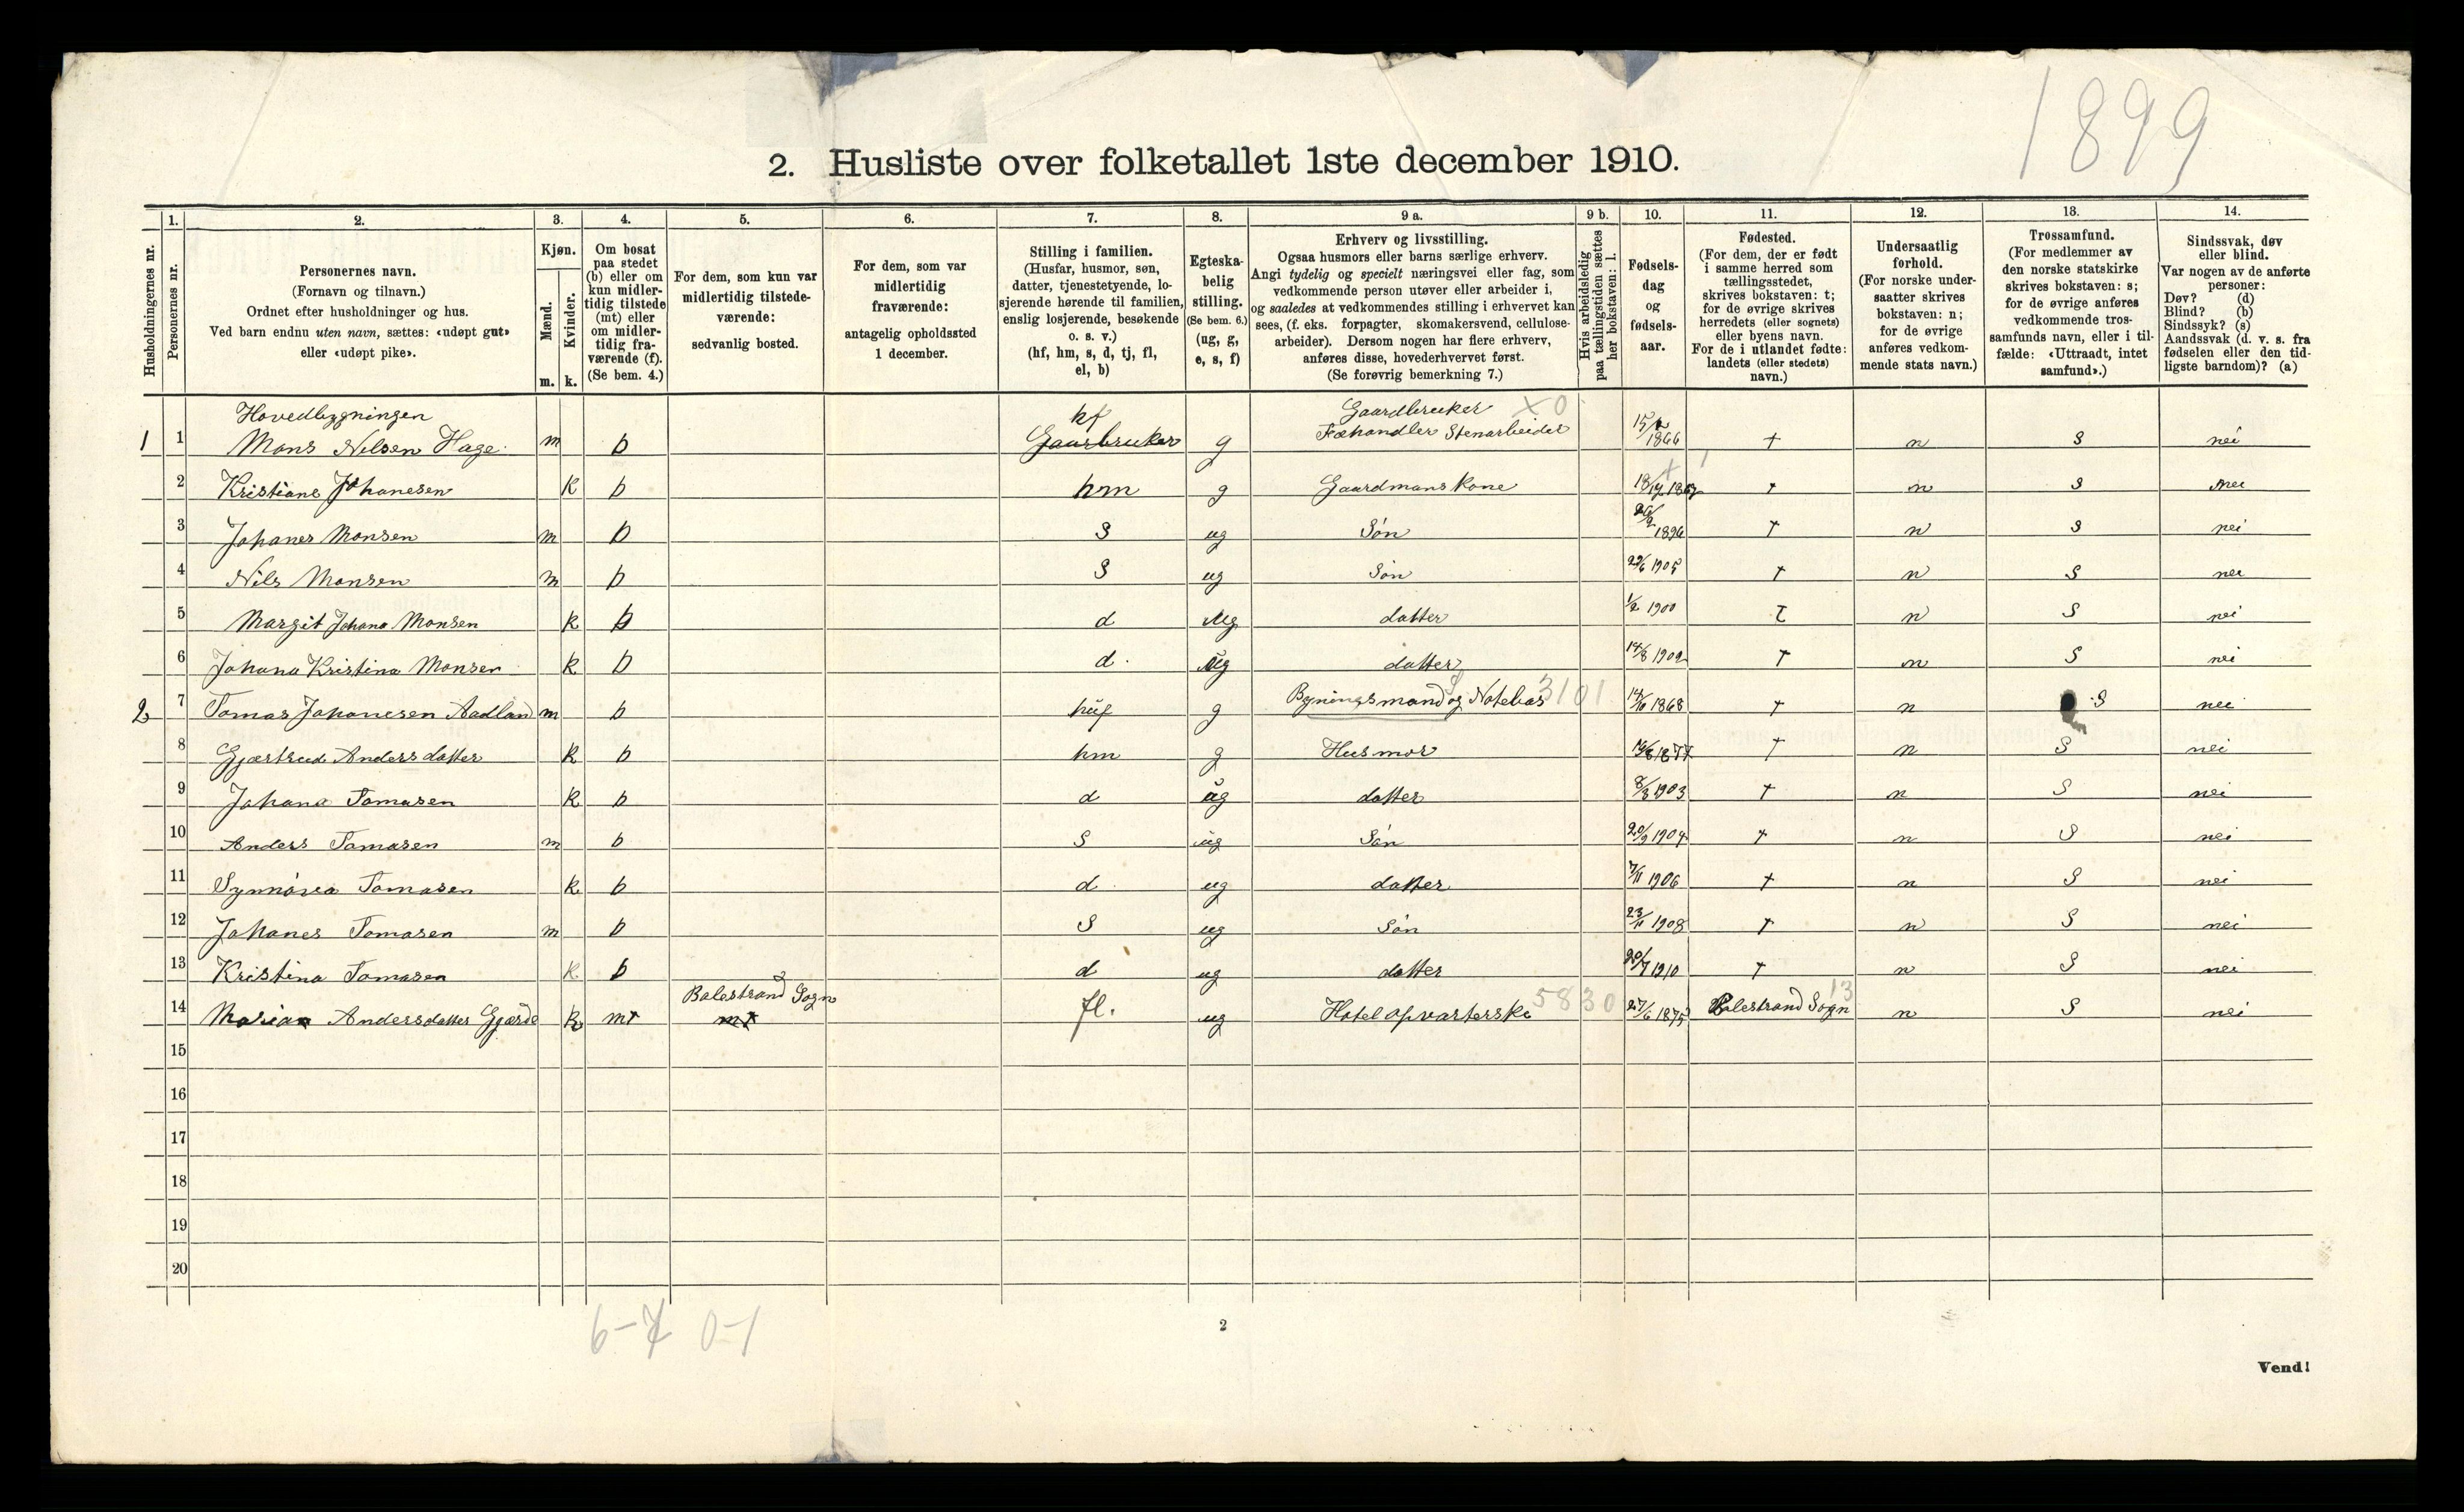 1899
2. Husliste over folketallet 1ste december 1910.
1. 2. 3. 4. 5. 6. 7. 8. 9 a. 9 b. 10. 11. 12. 13. 14.
Husholdningernes nr.
Personernes nr.
Personernes navn.
(Fornavn og tilnavn.)
Ordnet efter husholdninger og hus.
Ved barn endnu uten navn, sættes: «udøpt gut»
eller «udøpt pike».
Kjøn.
Mænd.
Kvinder.
m. k.
Om bosat
paa stedet
(b) eller om
kun midler-
tidig tilstede
(mt) eller
om midler-
tidig fra-
værende (f).
(Se bem. 4.)
For dem, som kun var
midlertidig tilstede-
værende:
sedvanlig bosted.
For dem, som var
midlertidig
fraværende:
antagelig opholdssted
1 december.
Stilling i familien.
(Husfar, husmor, søn,
datter, tjenestetyende, lo-
sjerende hørende til familien,
enslig losjerende, besøkende
o. s. v.)
(hf, hm, s, d, tj, fl,
el, b)
Egteska-
belig
stilling.
(Se bem. 6.)
(ug, g,
e, s, f)
Erhverv og livsstilling.
Ogsaa husmors eller barns særlige erhverv.
Angi tydelig og specielt næringsvei eller fag, som
vedkommende person utøver eller arbeider i,
og saaledes at vedkommendes stilling i erhvervet kan
sees, (f. eks. forpagter, skomakersvend, cellulose-
arbeider). Dersom nogen har flere erhverv,
anføres disse, hovederhvervet først.
(Se forøvrig bemerkning 7.)
Hvis arbeidsledig
paa tællingstiden sættes
her bokstaven: l.
Fødsels-
dag
og
fødsels-
aar.
Fødested.
(For dem, der er født
i samme herred som
tællingsstedet,
skrives bokstaven: t;
for de øvrige skrives
herredets (eller sognets)
eller byens navn.
For de i utlandet fødte:
landets (eller stedets)
navn.)
Undersaatlig
forhold.
(For norske under-
saatter skrives
bokstaven: n;
for de øvrige
anføres vedkom-
mende stats navn.)
Trossamfund.
(For medlemmer av
den norske statskirke
skrives bokstaven: s;
for de øvrige anføres
vedkommende tros-
samfunds navn, eller i til-
fælde: «Uttraadt, intet
samfund».)
Sindssvak, døv
eller blind.
Var nogen av de anførte
personer:
Døv? (d)
Blind? (b)
Sindssyk? (s)
Aandssvak (d. v. s. fra
fødselen eller den tid-
ligste barndom)? (a)
Hovedbygningen hf Gaardbruker X 0
1 1 Mons Nilsen Hage m b Gaarbruker g Fæhandler Stenarbeider 1866 t n S nei
2 Kristiane Johanesen k b hm g Gaardmanskone t n S nei
3 Johanes Monsen m b S ug Søn 1896 t n S nei
4 Nils Monsen m b S ug Søn 22/6 1905 t n S nei
5 Margit Johana Monsen k b d ug datter 1/2 1900 t n S nei
6 Johana Kristina Monsen k b d. ug datter 14/8 1902 t n S nei
2 7 Tomas Johanesen Aadland m b huf g Bygningsmand og Notebas 3101 14/10 1868 t n S nei
8 Gjærtrud Andersdatter k b hm g Husmor 1877 t n S nei
9 Johana Tomasen k b d ug datter 8/8 1903 t n S nei
10 Anders Tomasen m b S ug Søn 20/9 1904 t n S nei
11 Synnøva Tomasen k b d ug datter 7/11 1906 t n S nei
12 Johanes Tomasen m b S ug Søn 23/11 1908 t n S nei
13 Kristina Tomasen k b d ug datter 20/7 1910 t n S nei
14 Marian Andersdatter Gjærde k mt Balestrand Sogn mt fl. ug Hotelopvarterske 5830 27/6 1875 Balestrand Sogn 13 n S nei
15
16
17
18
19
20
6-7 0-1
2
Vend!